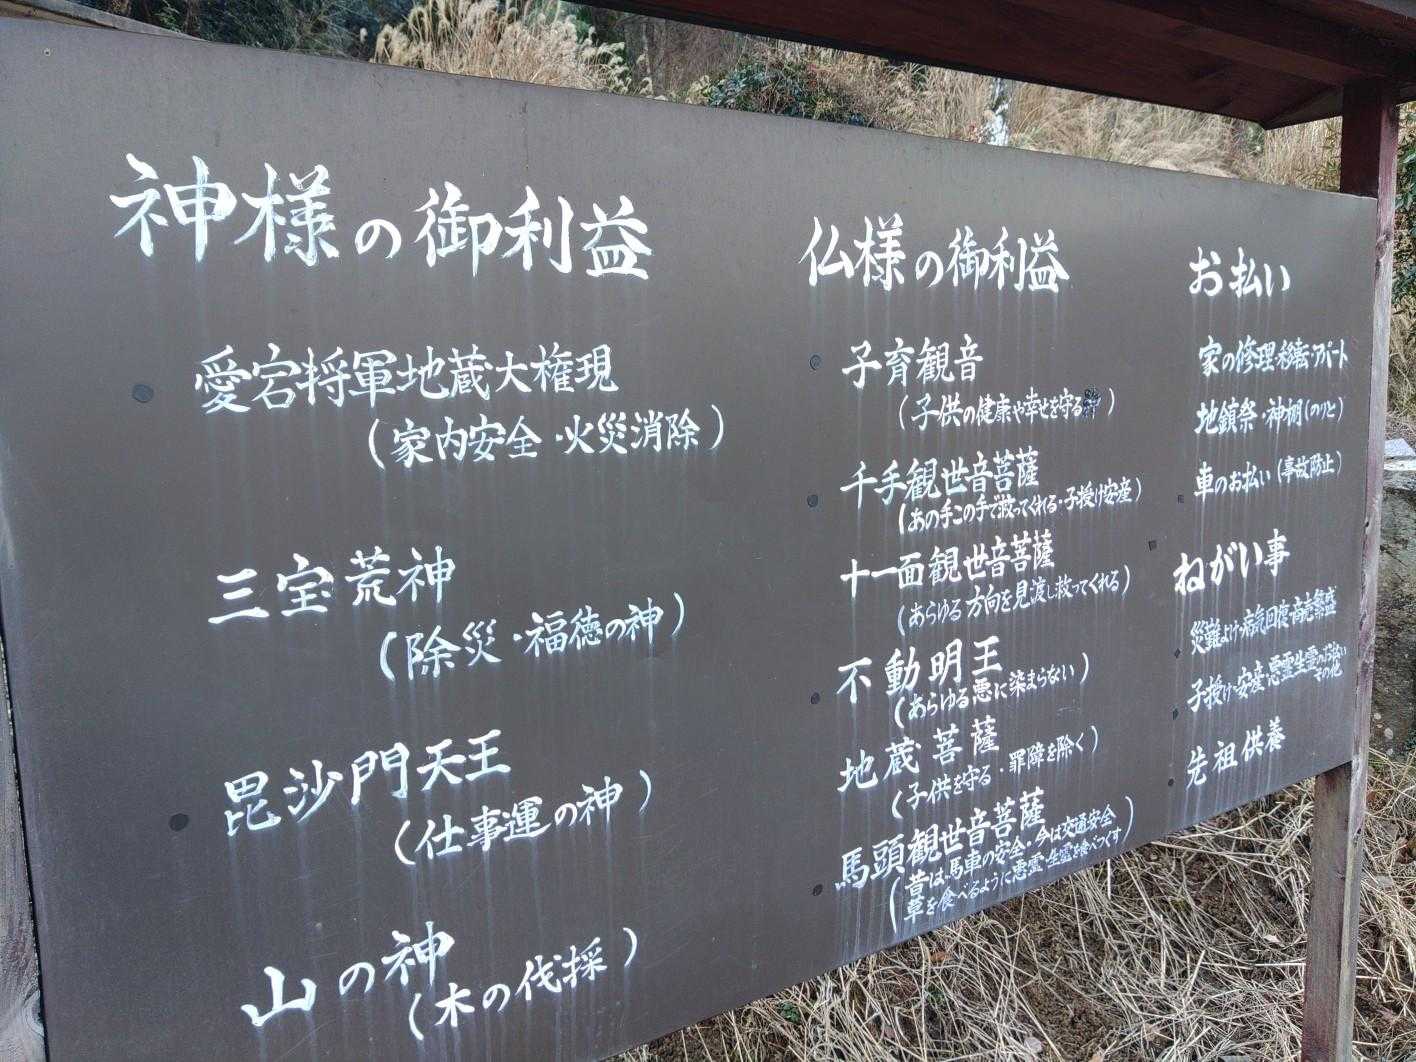 神様の御利益
愛宕将軍地蔵大権現
(家内安全・火災消除)
三宝荒神
(除災・福徳の神)
毘沙門天王
(仕事運の神)
山の神
(木の伐採)
仏様の御利益
子育観音
(子供の健康や幸せを守る)
千手観世音菩薩
(あの手この手で救ってくれる・子授け安産)
十一面観世音菩薩
(あらゆる方向を見渡し救ってくれる)
不動明王
(あらゆる悪に染まらない)
地蔵菩薩
(子供を守る・罪障を除く)
馬頭観世音菩薩
(昔は、馬車の安全・今は交通安全
草を食べるように悪霊・生霊を食べつくす)
お払い
家の修理・移転・アパート
地鎮祭・神棚(のりと)
車のお払い(事故防止)
ねがい事
災難よけ・病気回復・商売繁盛
子授け・安産・悪霊生霊のお払い
その他
先祖供養